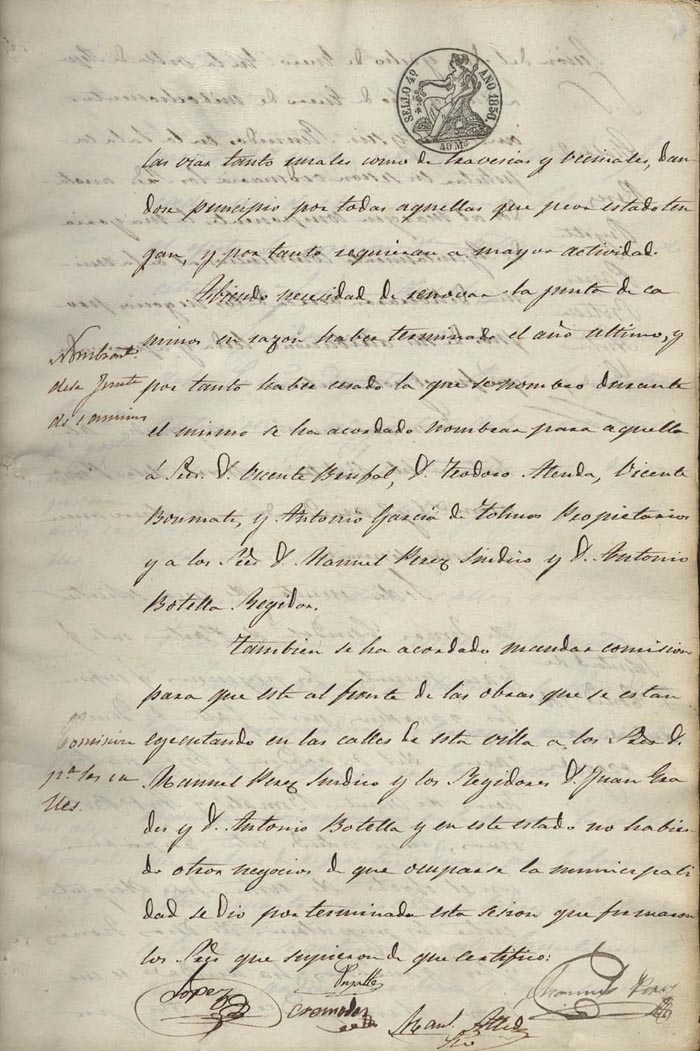 SELLO 4º AÑO 1856.
40 Ms
las vias tanto rurales como de travesias y vecinales, dan
dose principio por todas aquellas que peor estado ten
gan, y por tanto requieran a mayor actividad.
Abiendo necesidad de renovar la junta de ca
minos en razon haber terminado el año ultimo, y
Nombrant
dela Junta
de caminos
por tanto haber cesado la que se nombro durante
el mismo se ha acordado nombrar para aquella
á Sres. D. Vicente D. Teodoro Vicente
Bonmati, y Antonio García de Propietarios
y a los Sres D. Manuel Perez Sindico y D. Antonio
Botella Regidor.
Tambien se ha acordado mandar comision
para que este al frente de las obras que se estan
Comision
pª las ca
lles.
ejecutando en las calles de esta villa a los Sres D.
Manuel Perez Sindico y los Regidores D. Juan
y D. Antonio Botella y en este estado no habien
do otros negocios de que ocuparse la municipali
dad se dio por terminada esta sesion que firmaron
los Sres que supieron de que certifico:
Lopez
Manuel Perez